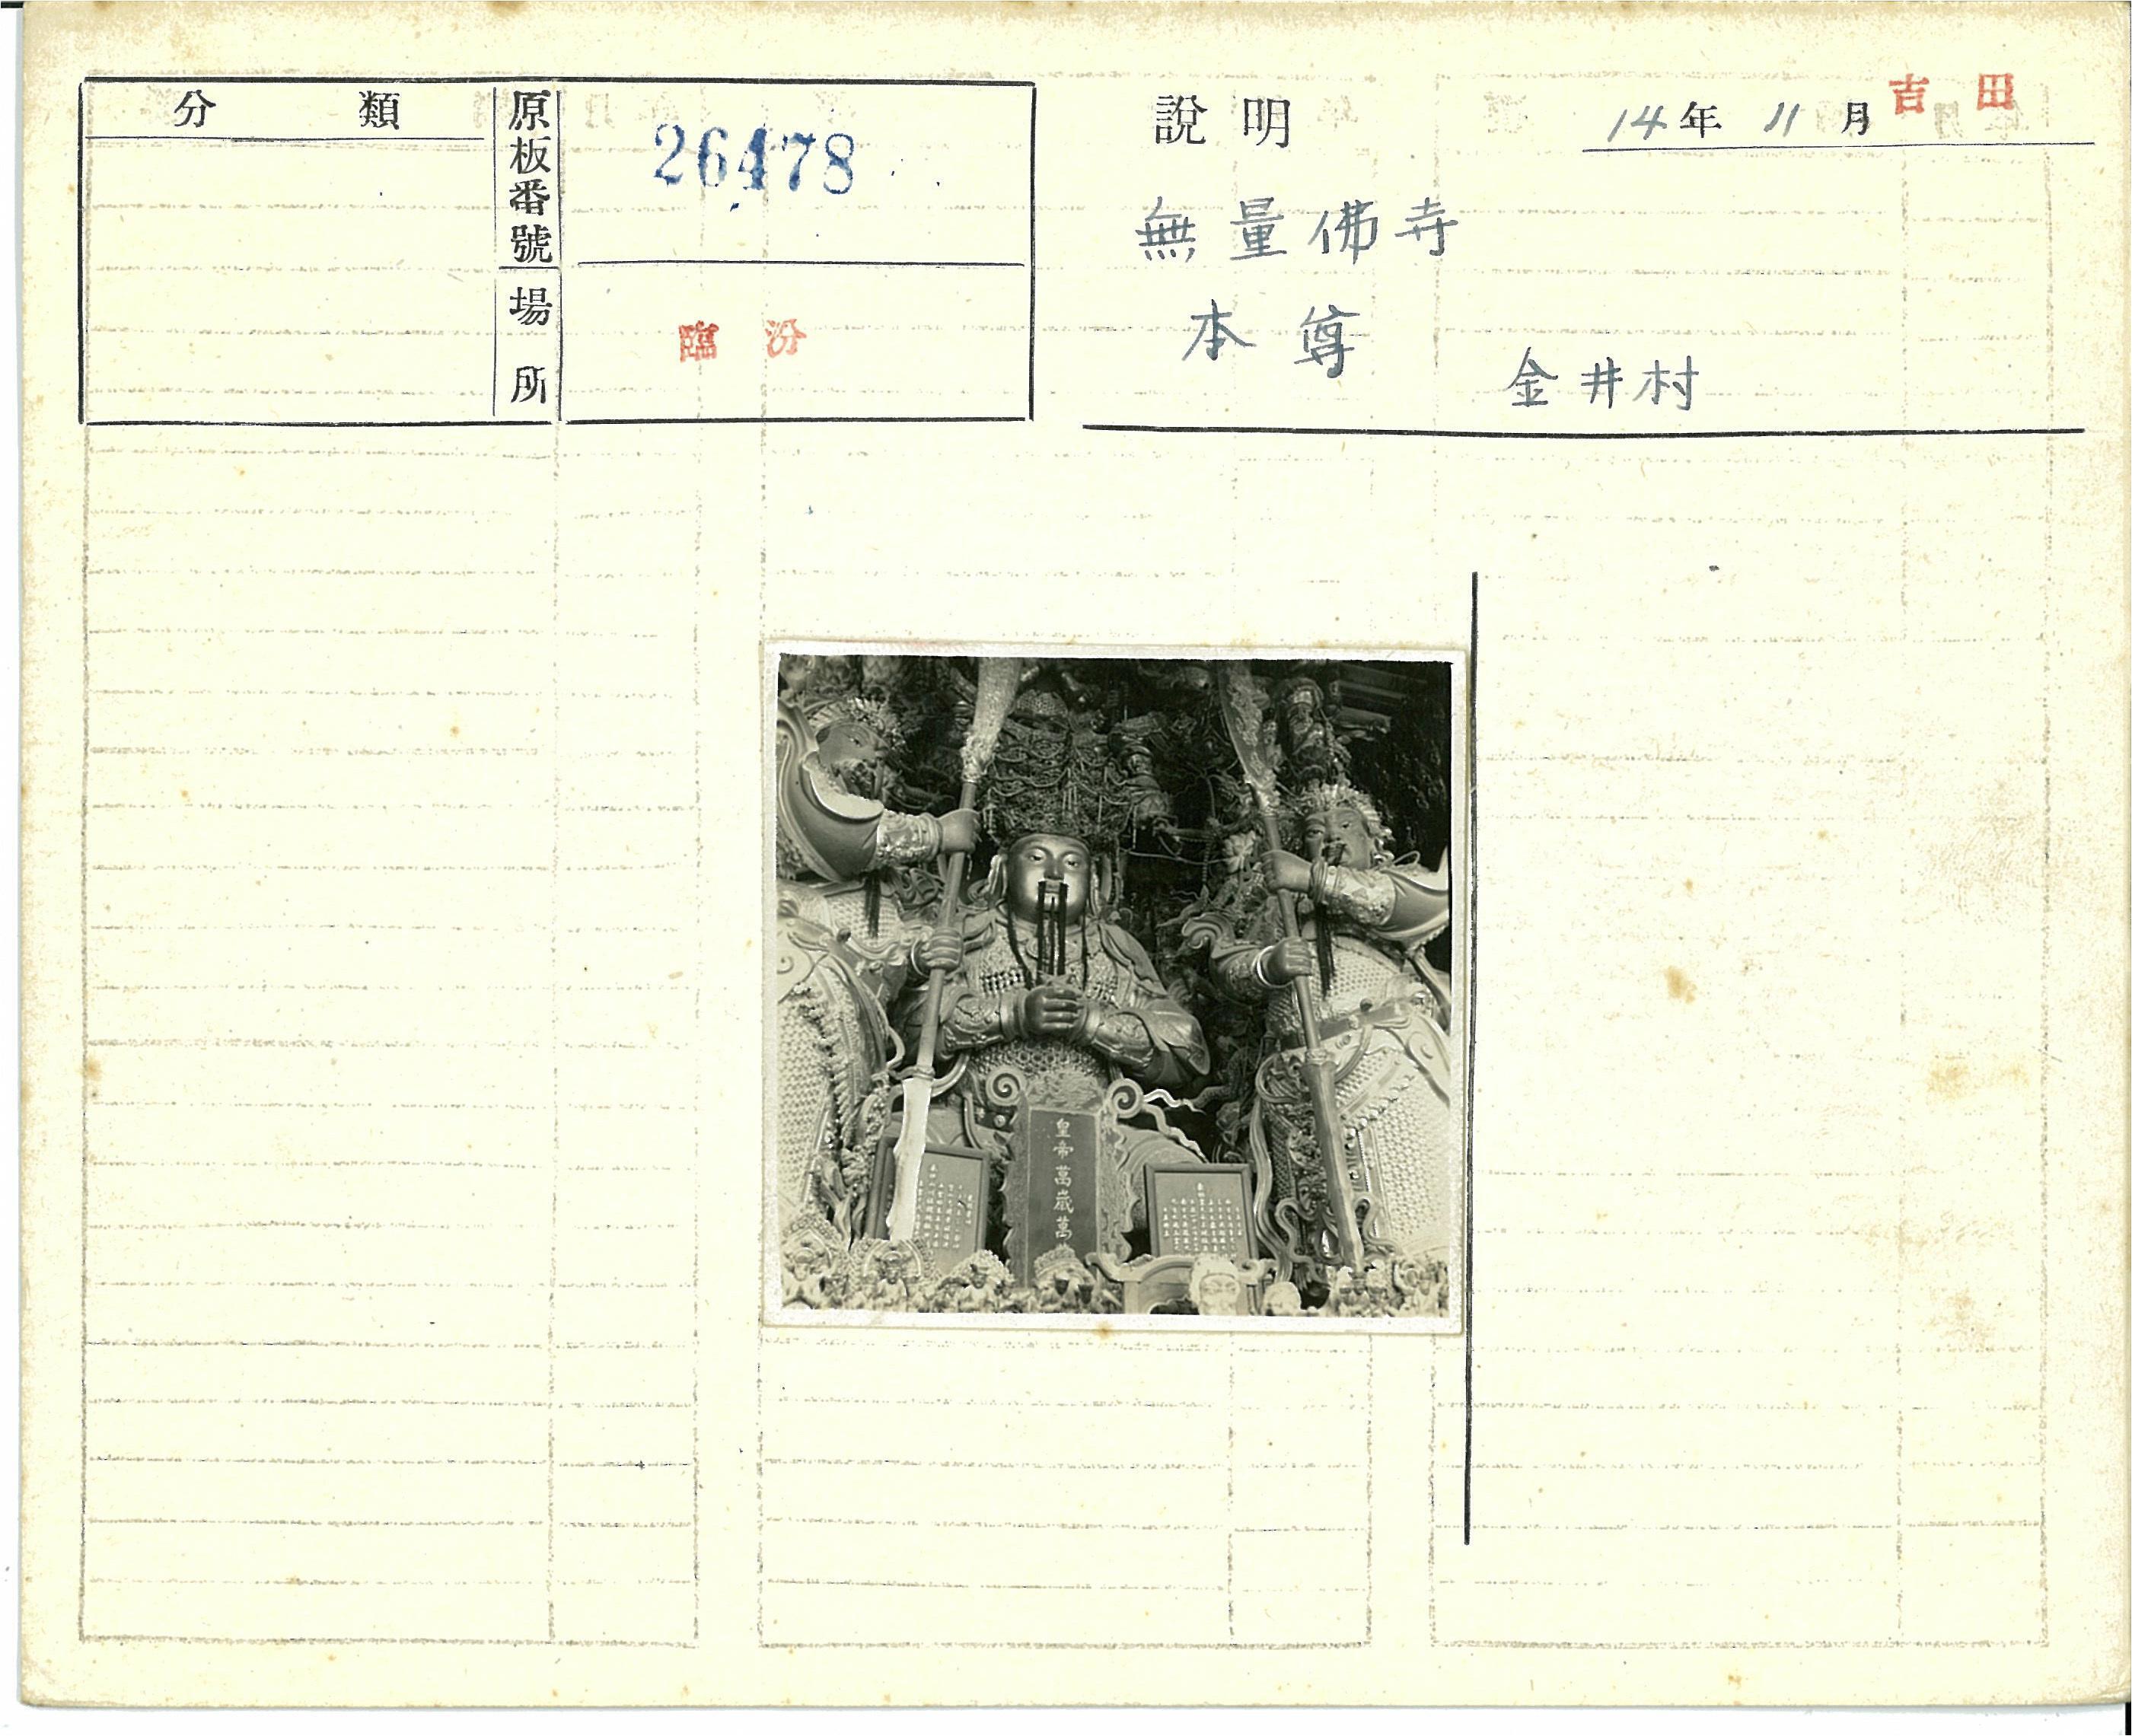 分類
原板番號
26478
場所
臨汾
說明
14年11月
吉田
無量佛寺
本尊
金井村
皇帝萬歲萬